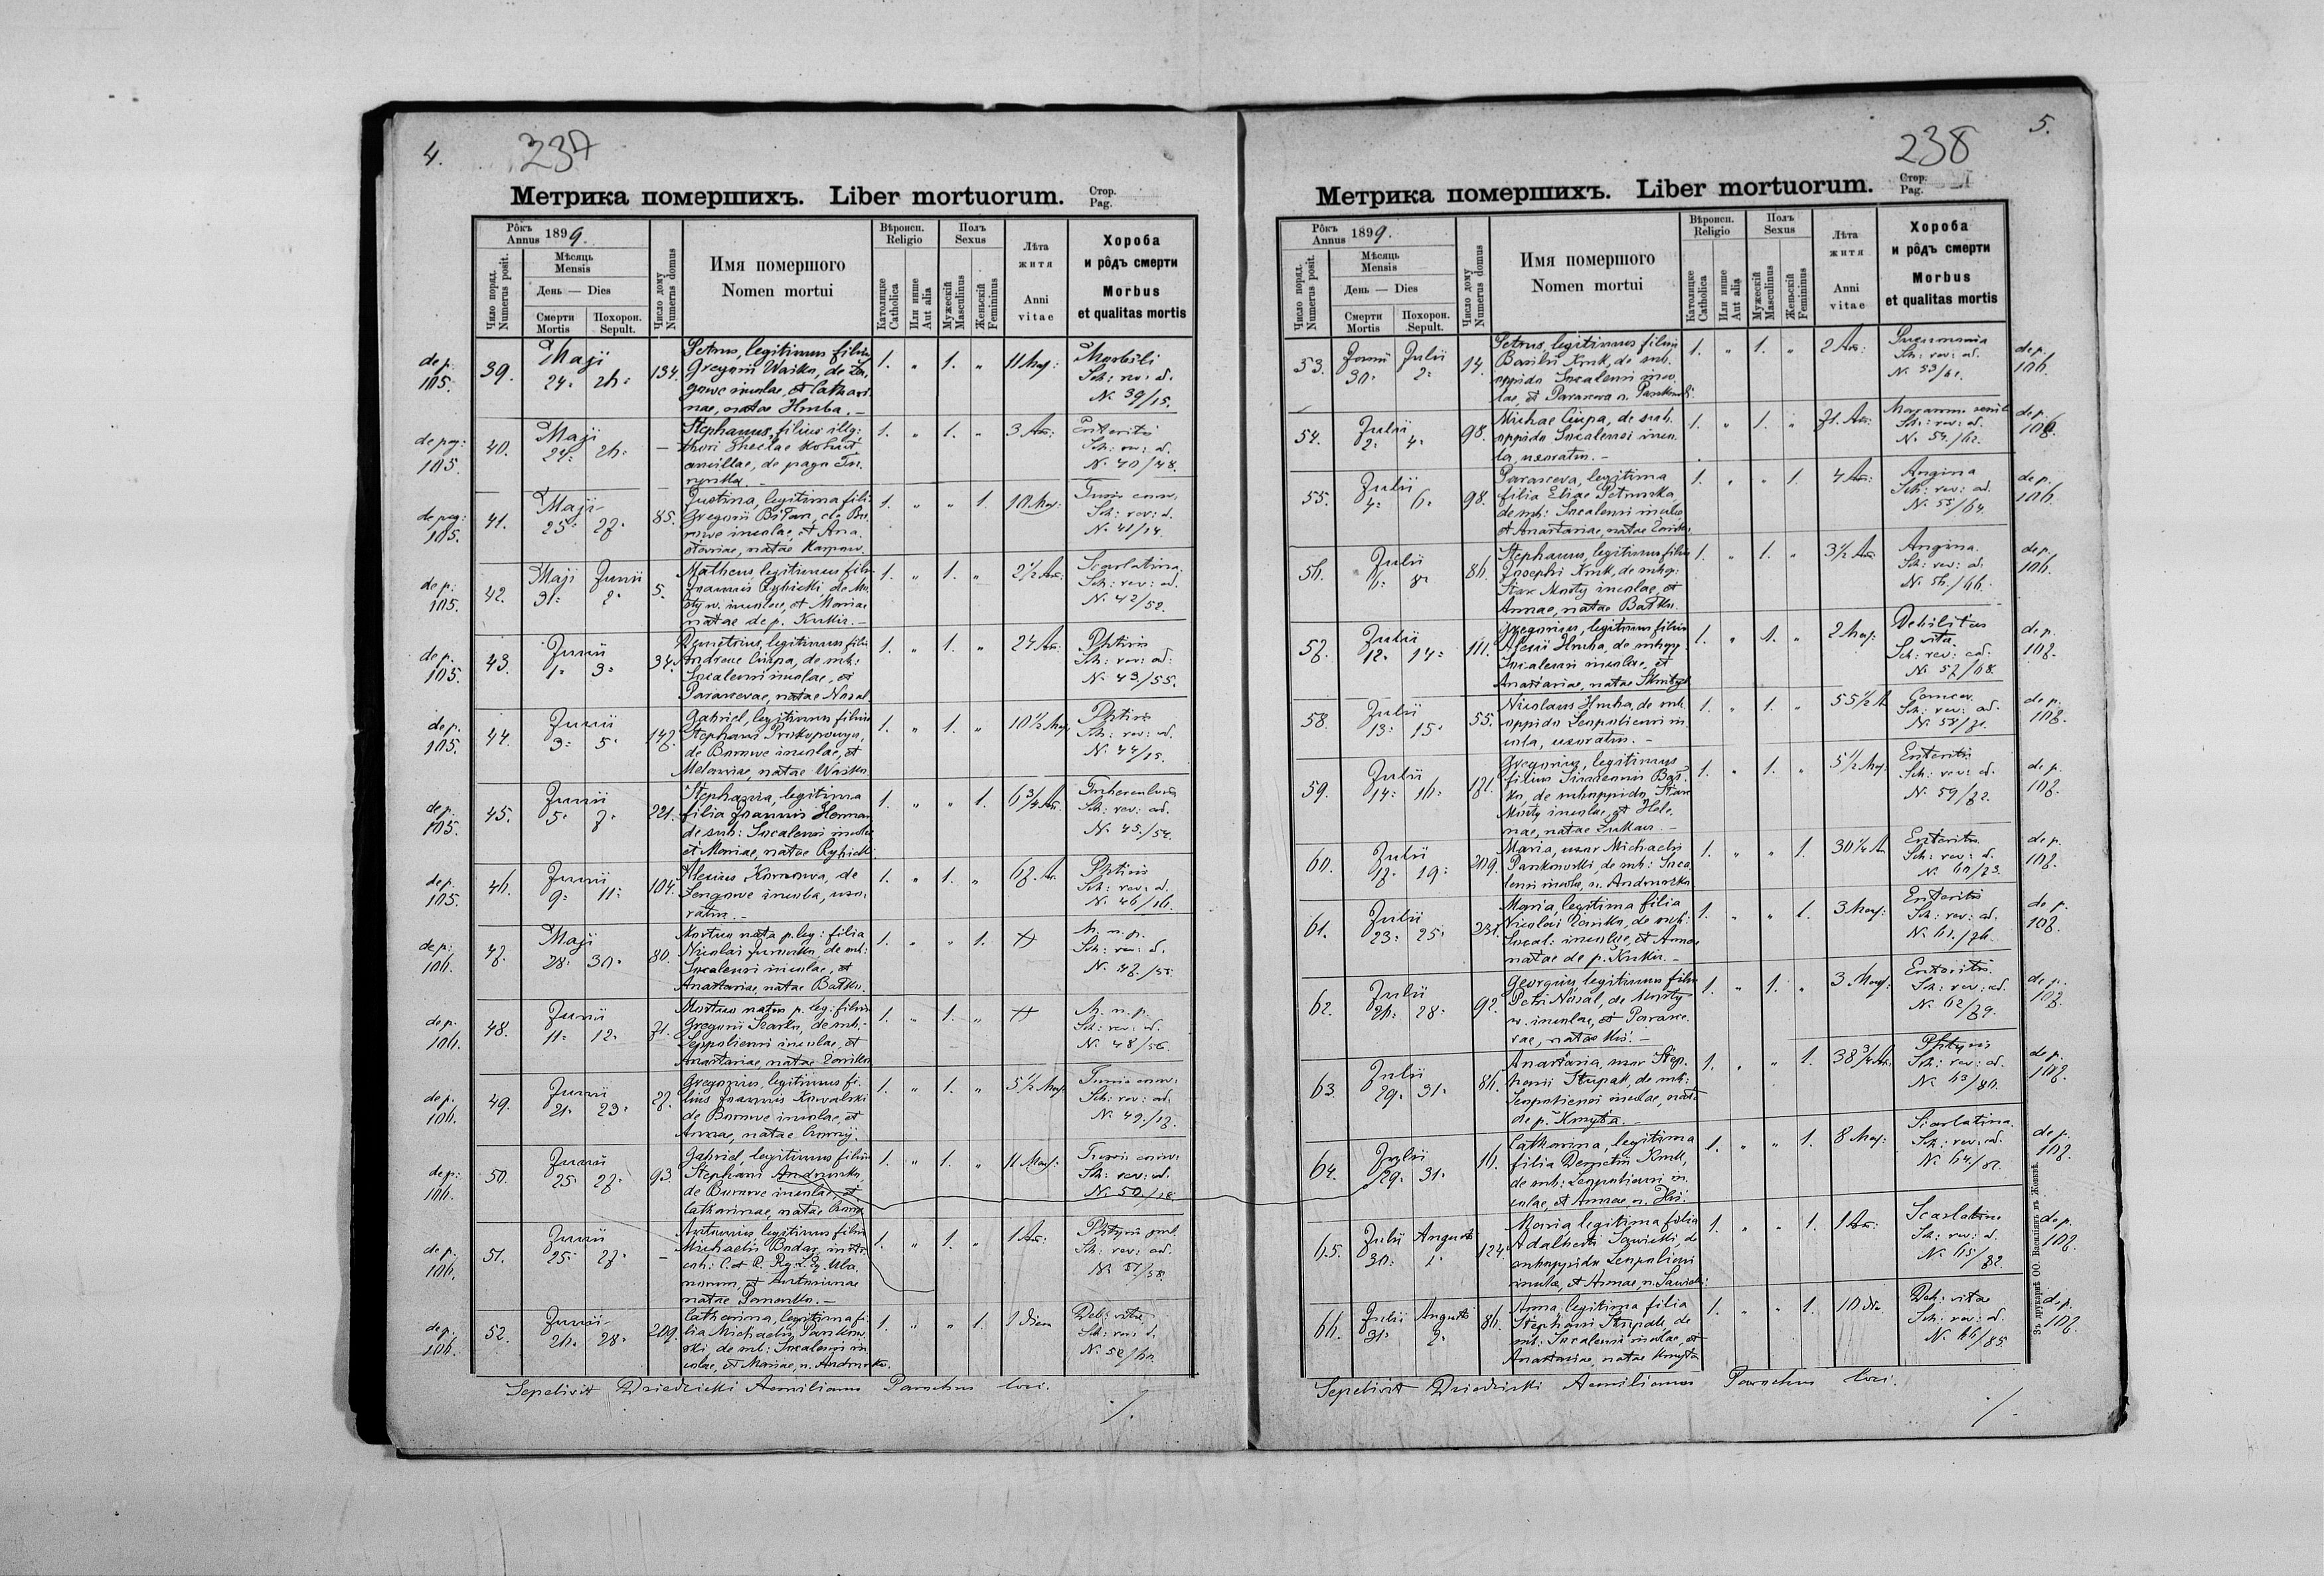 4.
237
Метрика помершихъ. Liber mortuorum.
Стор.
Pag.
Рôкъ
Annus 1899.
Чило поряд.
Numerus posit.
Мѣсяць
Mensis
День — Dies
Смерти
Mortis
Похорон.
Sepult.
Число дому
Numerus domus
Имя помершого
Nomen mortui
Вѣроисп.
Religio
Католицке
Catholica
Или инше
Aut alia
Полъ
Sexus
Мужескій
Masculinus
Женьскій
Femininus
Лѣта
житя
Anni
vitae
Хороба
и рôдъ смерти
Morbus
et qualitas mortis
de p.
105.
39.
Maji
24. 26.
134.
Petrus, legitimus filius
Gregorii Waśko, de
incolae, et Cathari
nae, natae Hruba. —
1. " 1. "
11 Mens:
Morbili
Sch: rev: d.
N. 39/15.
de pag:
105.
40.
Maji
24. 26.
—
Stephanus, filius illeg:
thori Theclae
ancillae, de pago
1. " 1. "
3 An:
Enteritis
Sch: rev: d.
N. 40/48.
de pag:
105.
41.
Maji
25. 27.
85.
Justina, legitima filia
Gregorii de Bu
rowe incolae, et Ana
staviae, natae
1. " " 1.
10 Mens:
Sch: rev: d.
N. 41/14.
de p.
105.
42.
Maji Junii
31. 2.
5.
Matheus legitimus filius
Joannis Rybicki, de Mo
sty w. incolae, et Mariae
natae de p. Kukiz. —
1. " 1. "
2 1/2 An:
Scarlatina
Sch: rev: ad.
N. 42/52.
de p.
105.
43.
Junii
1. 3.
34.
Demetrius, legitimus filius
Andreae Ciupa, de sub:
Sucalensi incolae, et
Parascevae, natae Nosal
1. " 1. "
24 An:
Phtisis
Sch: rev: ad.
N. 43/55.
de p.
105.
44.
Junii
3. 5.
147.
Gabriel, legitimus filius
Stephani Prokopowycz,
de Burowe incolae, et
Melaniae, natae Waśko.
1. " 1. "
10 1/2 Mens
Phtisis
Sch: rev: ad.
N. 44/15.
de p.
105.
45.
Junii
5. 7.
221.
Stephania, legitima
filia Joannis Herman
de sub: Sucalensi incolae
et Mariae, natae Rybicki.
1. " " 1.
6 3/4 An:
Tuberculosis
Sch: rev: ad.
N. 45/54.
de p.
105.
46.
Junii
9. 11.
104.
Alexius Korrowa, de
incola, uxo
ratus. —
1. " 1. "
67. An.
Phtisis
Sch: rev: d.
N. 46/16.
de p.
106.
47.
Maji
28. 30.
80.
Mortuo nata p. leg: filia
Nicolai Jurewko, de sub:
Sucalensi incolae, et
Anastasiae, natae Baśko.
1. " " 1.
M. n. p.
Sch: rev: d.
N. 47/55.
de p.
106.
48.
Junii
11. 12.
71.
Mortuo natus p. leg: filius
Gregorii Szarko, de sub:
Leopoliensi incolae, et
Anastasiae, natae Zoriko
1. " 1. "
M. n. p.
Sch: rev: d.
N. 48/56.
de p.
106.
49.
Junii
21. 23.
27.
Gregorius, legitimus fi
lius Joannis Kowalski
de Burowe incolae, et
Annae, natae
1. " 1. "
5 1/2 Mens:
Sch: rev: ad.
N. 49/17.
de p.
106.
50.
Junii
25. 27.
93.
Gabriel, legitimus filius
Stephani Andrusko,
de Burowe incolae, et
Catharinae, natae
1. " 1. "
11 Mens:
Sch: rev: d.
N. 50/18.
de p.
106.
51.
Junii
25. 27.
—
Antonius, legitimus filius
Michaelis Bodar,
natae Romanko. —
1. " 1. "
1 An:
Phtysis pul.
Sch: rev: ad.
N. 51/58.
de p.
106.
52.
Junii
26. 28.
209.
Catharina, legitima fi
lia Michaelis Pankow
ski, de sub: Sucalensi in
colae, et Mariae, n. Andrusko.
1. " " 1.
1 Diem
Deb: vitae
Sch: rev: d.
N. 52/60.
Sepelivit Dziedzicki Aemilianus Parochus loci.
5.
238
Метрика помершихъ. Liber mortuorum.
Стор.
Pag.
Рôкъ
Annus 1899.
Число поряд.
Numerus posit.
Мѣсяць
Mensis
День — Dies
Смерти
Mortis
Похорон.
Sepult.
Число дому
Numerus domus
Имя помершого
Nomen mortui
Вѣроисп.
Religio
Католицке
Catholica
Или инше
Aut alia
Полъ
Sexus
Мужескій
Masculinus
Женьскій
Femininus
Лѣта
житя
Anni
vitae
Хороба
и рôдъ смерти
Morbus
et qualitas mortis
53.
Junii Julii
30. 2.
14.
Petrus, legitimus filius
Basilii Kruk, de sub.
oppido Sucalensi inco
lae, et Parasceva n. Pankowski.
1. " 1. "
2 An:
Pneumonia
Sch: rev: ad.
N. 53/61.
de p.
106.
54.
Julii
2. 4.
98.
Michael Ciupa, de sub.
oppido Sucalensi inco
la, uxoratus. —
1. " 1. "
71. An:
Marasmus senil
Sch: rev: ad.
N. 54/62.
de p.
106.
55.
Julii
4. 6.
98.
Parasceva, legitima
filia Eliae Petruszka
de sub: Sucalensi incolae
et Anastasiae, natae Zoriko.
1. " " 1.
4 An:
Angina
Sch: rev: ad.
N. 55/64.
de p.
106.
56.
Julii
6. 8.
86.
Stephanus, legitimus filius
Josephi Kruk, de subop:
Stare Mosty incolae, et
Annae, natae Baśko.
1. " 1. "
3 1/2 An
Angina.
Sch: rev: ad.
N. 56/66.
de p.
106.
57.
Julii
12. 14.
111.
Gregorius, legitimus filius
Alexii Hruba, de subopp.
Sucalensi incolae, et
Anastasiae, natae
1. " 1. "
2 Mens:
Debilitas
vitae
Sch: rev: ad.
N. 57/68.
de p.
107.
58.
Julii
13. 15.
55.
Nicolaus Hruba, de sub.
oppido Leopoliensi in
cola, uxoratus. —
1. " 1. "
55 1/2 A
Cancer
Sch: rev: ad.
N. 58/71.
de p.
107.
59.
Julii
14. 16.
171.
Gregorius, legitimus
filius Simeonis Baś
ko, de suboppido Stare
Mosty incolae, et Hele
nae, natae Lukasz. —
1. " 1. "
5 1/2 Mens:
Enteritis
Sch: rev: d.
N. 59/72.
de p.
107.
60.
Julii
17. 19.
209.
Maria, uxor Michaelis
Pankowski, de sub: Suca
lensi incola, n. Andruszko
1. " " 1.
30 1/4 A
Enteritis
Sch: rev: d.
N. 60/73.
de p.
107.
61.
Julii
23. 25.
231.
Maria, legitima filia
Nicolai Zoriko, de sub:
Sucal: incolae, et Annae
natae de p. Kukiz. —
1. " " 1.
3 Mens:
Enteritis
Sch: rev: ad.
N. 61/76.
de p.
107.
62.
Julii
26. 28.
92.
Georgius, legitimus filius
Petri Nosal, de Mosty
w. incolae, et Parasce
vae, natae Kiś. —
1. " 1. "
3 Mens:
Enteritis.
Sch: rev: ad.
N. 62/79.
de p.
107.
63.
Julii
29. 31.
86.
Anastasia, uxor Step
hani Stupak, de sub:
Leopoliensi incolae, nata
de p. Kmyta. —
1. " " 1.
38 3/4 An.
Phtysis
Sch: rev: d.
N. 63/80.
de p.
107.
64.
Julii
29. 31.
16.
Catharina, legitima
filia Demetrii Kruk,
de sub: Leopoliensi in
colae, et Annae, n. Kiś.
1. " " 1.
8 Mens:
Scarlatina.
Sch: rev: d.
N. 64/81.
de p.
107.
65.
Julii Augusti
30. 1.
124.
Maria legitima filia
Adalberti Sawicki, de
suboppido Leopoliensi
incolae, et Annae, n. Sawicki.
1. " " 1.
1 An:
Scarlatina
Sch: rev: d.
N. 65/82.
de p.
107.
66.
Julii Augusti
31. 2.
86.
Anna, legitima filia
Stephani Stupak, de
sub: Sucalensi incolae, et
Anastasiae, natae Kmyta
1. " " 1.
10 Die.
Deb: vitae
Sch: rev: d.
N. 66/85.
de p.
107.
Sepelivit Dziedzicki Aemilianus Parochus loci.
Зъ друкарнѣ ОО. Василіянъ въ Жовквѣ.